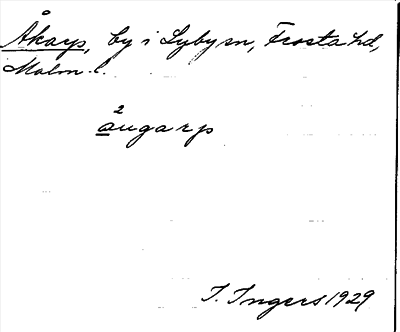 Åkarp, by i Lyby sn, Frosta hd,
Malm. l.
2
augarp
I. Ingers 1929